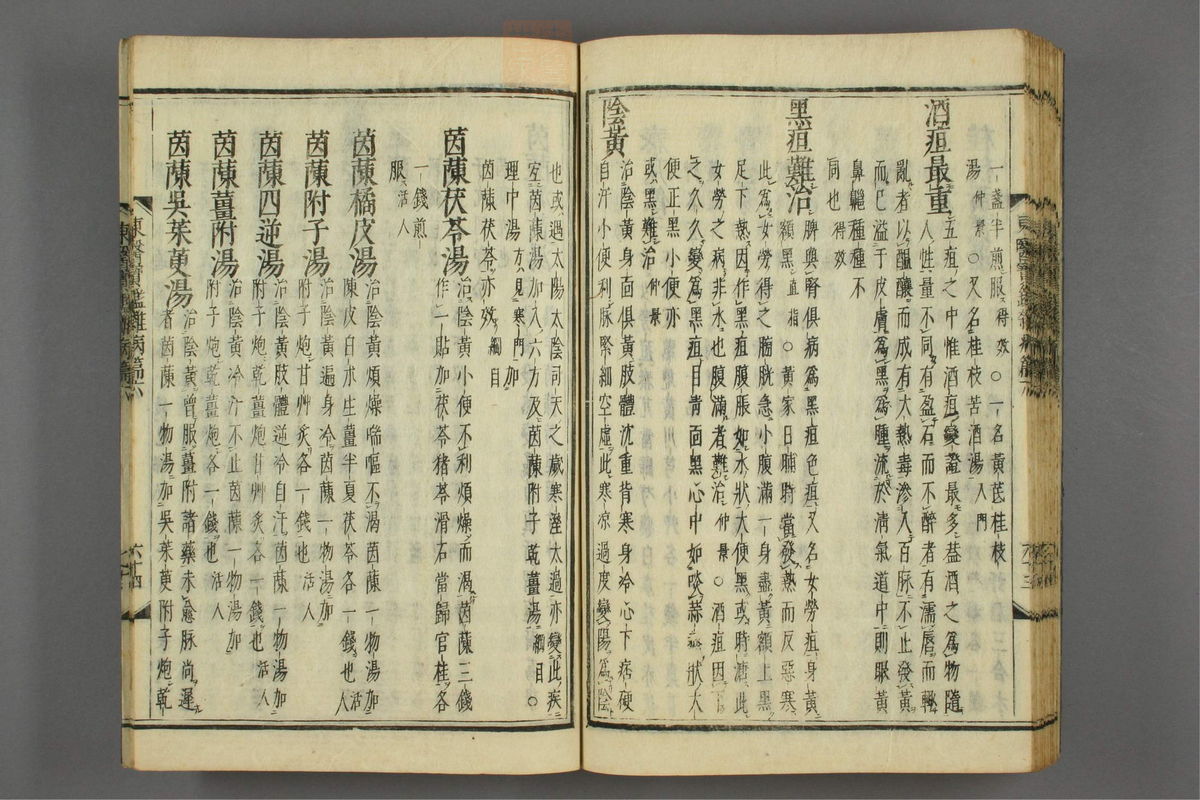 一盞半煎服得效○一名黃芪桂枝
湯仲景○又名桂枝苦酒湯入門
酒疸最重 五疸之中惟酒疸變證最多盖酒之爲物隨
人性量不同有盈石而不醉者有濡唇而輒
亂者以醞釀而成有大熱毒滲入百脉不止發黃
而已溢于皮膚爲黑爲腫流於清氣道中則眼黃
鼻齆種種不
同也得效
黑疸難治 脾與腎俱病爲黑疸色疸又名女勞疸身黃
額黑直指○黃家日晡時當發熱而反惡寒
此爲女勞得之膀胱急小腹滿一身盡黃額上黑
足下熱因作黑疸腹脹如水狀大便黑或時溏此
女勞之病非水也腹滿者難治仲景○酒疸因下
之久久變爲黑疸目靑面黑心中如啖蒜狀大
便正黑小便亦
或黑難治仲景
陰黃 治陰黃身面俱黃肢體沈重背寒身冷心下痞硬
自汗小便利脉緊細空虛此寒凉過度變陽爲陰
也或過太陽太陰司天之歲寒溼太過亦變此疾
宜茵蔯湯加入六方及茵蔯附子乾薑湯綱目○
理中湯方見寒門加
茵蔯茯苓亦效綱目
茵蔯茯苓湯 治陰黃小便不利煩燥而渴茵蔯三錢
作一貼加茯苓猪苓滑石當歸官桂各
一錢煎
服活人
茵蔯橘皮湯 治陰黃煩燥喘嘔不渴茵蔯一物湯加
陳皮白朮生薑半夏茯苓各一錢也活人
茵蔯附子湯 治陰黃遍身冷茵蔯一物湯加
附子炮甘艸炙各一錢也活人
茵蔯四逆湯 治陰黃肢體逆冷自汗茵蔯一物湯加
附子炮乾薑炮甘艸炙各一錢也活人
茵蔯薑附湯 治陰黃冷汗不止茵蔯一物湯加
附子炮乾薑炮各一錢也活人
茵蔯吳茱萸湯 治陰黃曾服薑附諸藥未愈脉尚遲
者茵蔯一物湯加吳茱萸附子炮乾
東醫寶鑑雜病篇六
六十四